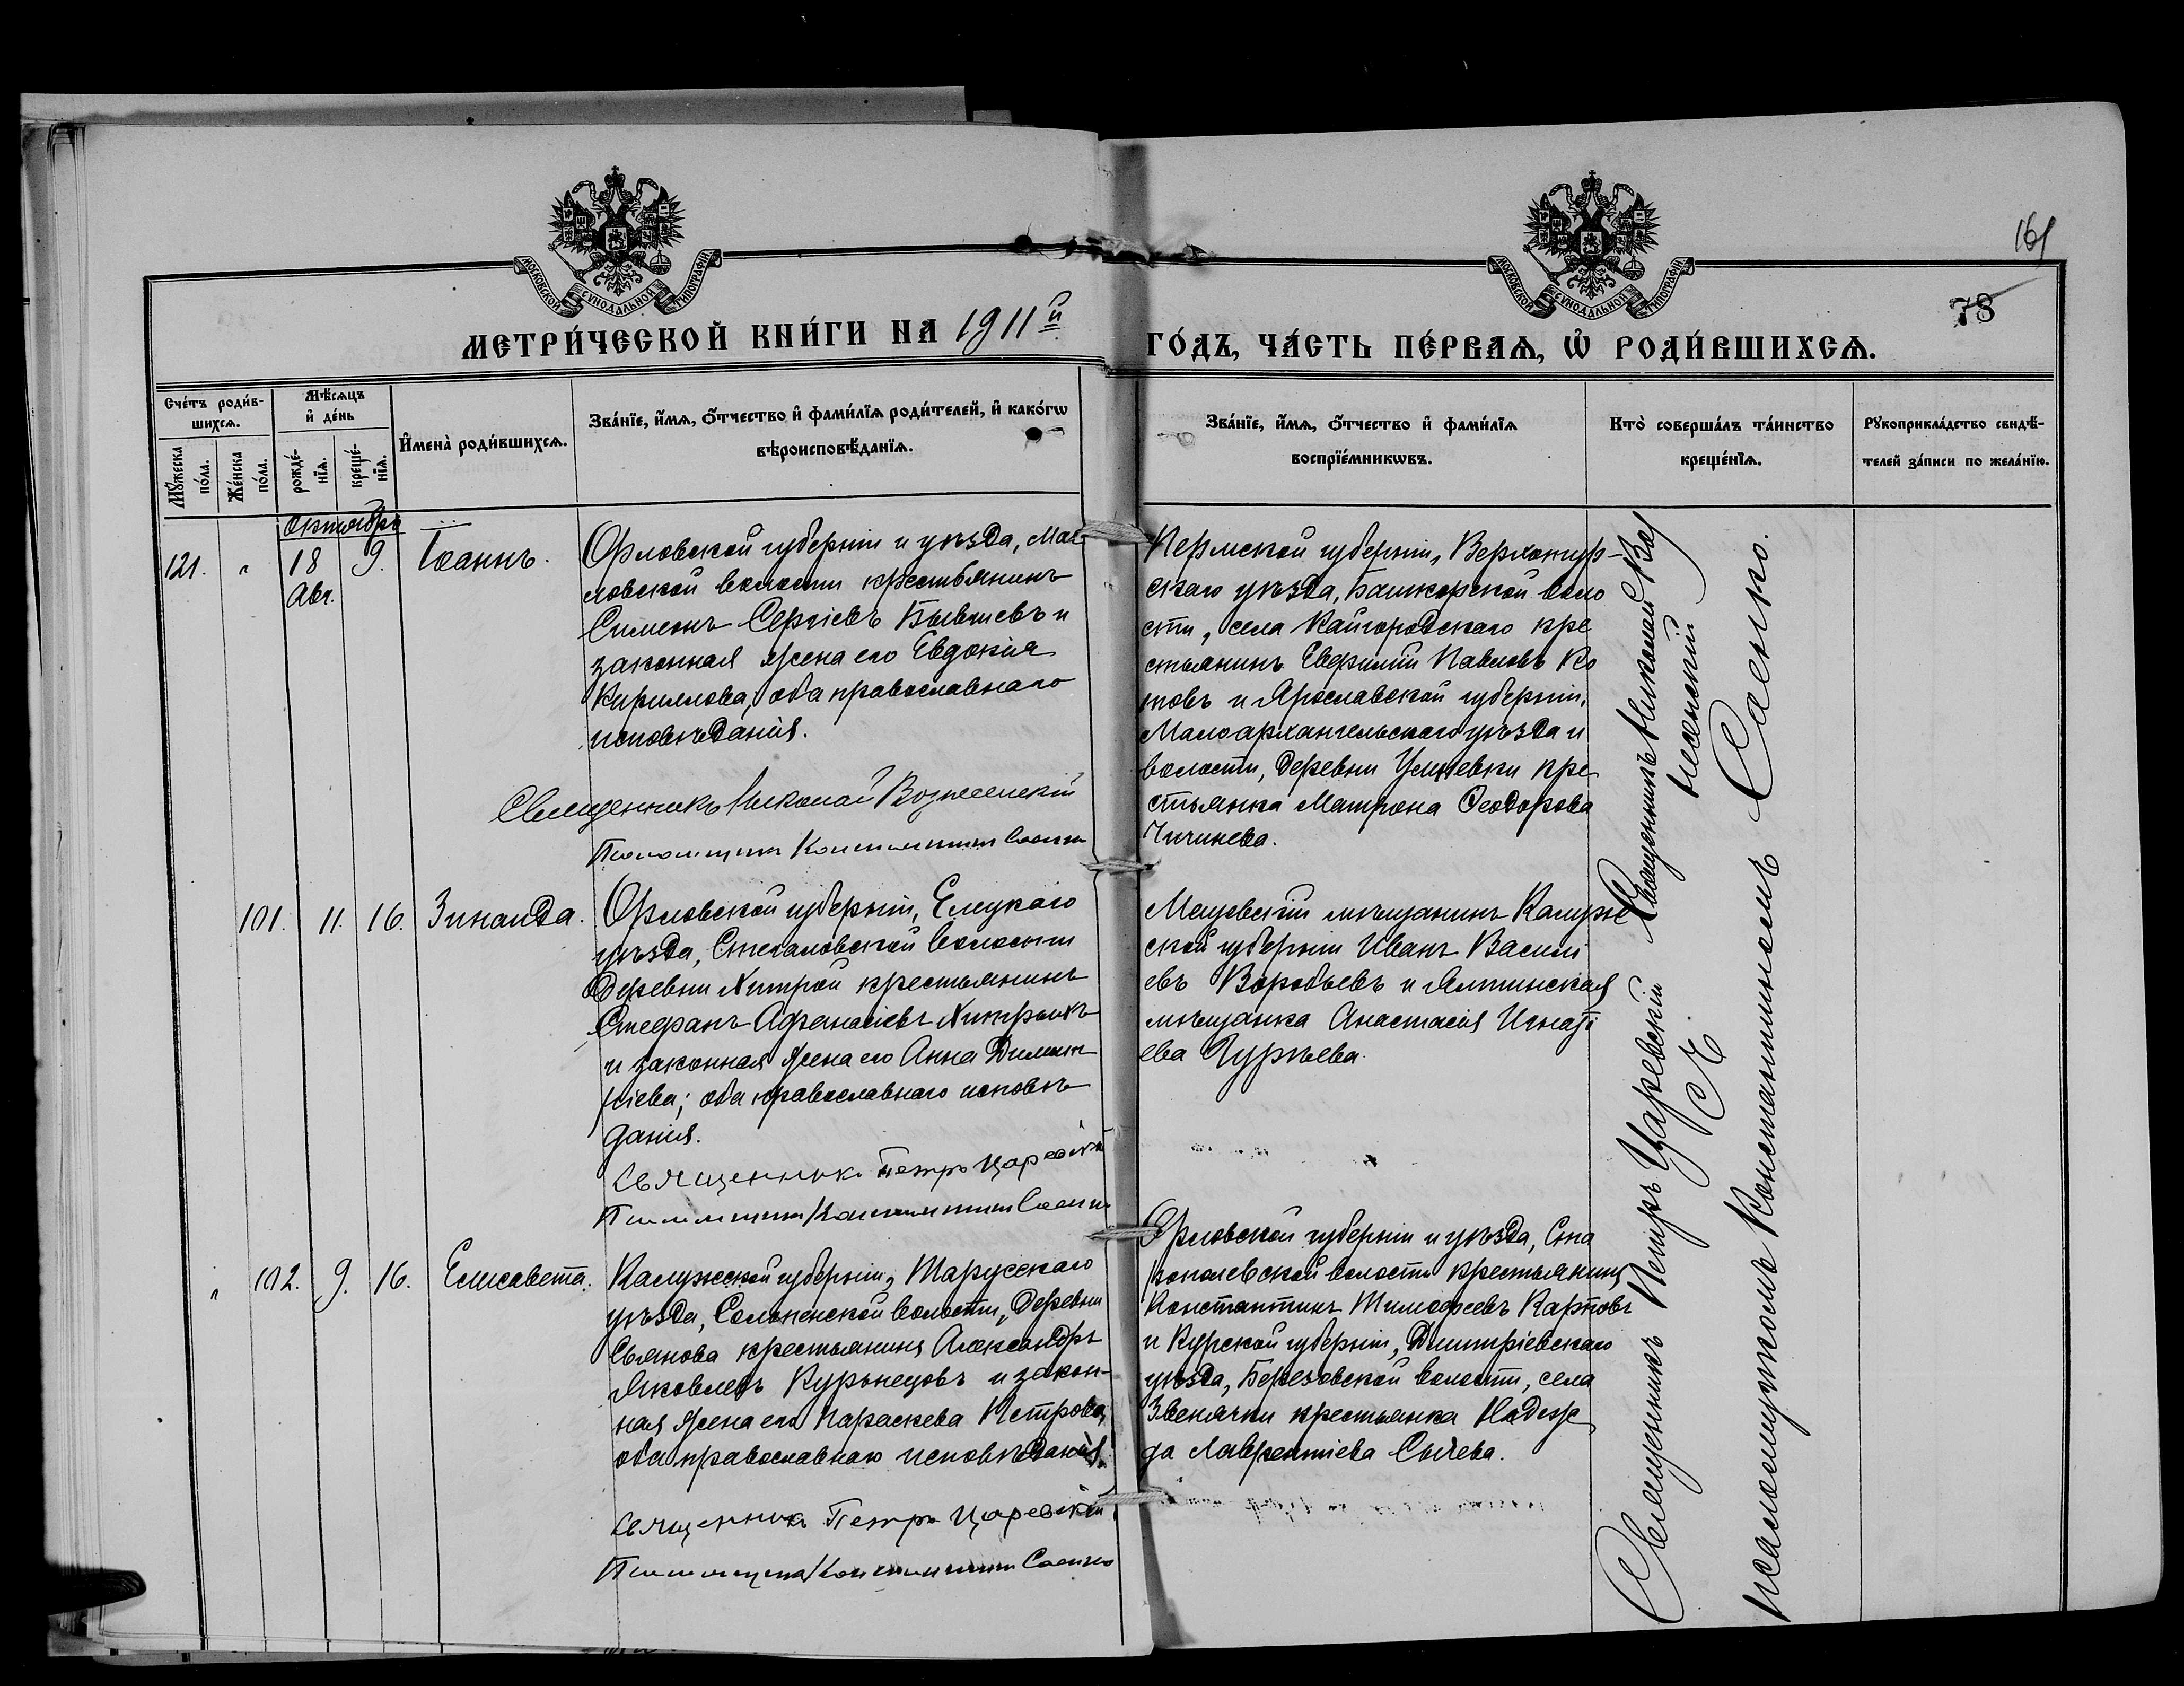 161
78
МОСКОВСКОЙ СѴНОДАЛЬНОЙ ТИПОГРАФІИ
МОСКОВСКОЙ СѴНОДАЛЬНОЙ ТИПОГРАФІИ
МЕТРИ́ЧЕСКОЙ КНИ́ГИ НА 1911й ГО́ДЪ, ЧА́СТЬ ПЕ́РВАѦ, Ѡ҆ РОДИ́ВШИХСѦ.
Сче́тъ роди́в-
шихсѧ.
Мꙋ́жеска
по́ла.
Же́нска
по́ла.
Мѣ́сѧцъ
и҆ де́нь
рожде́-
нїѧ.
креще́-
нїѧ.
И҆мена̀ роди́вшихсѧ.
Зва́нїе, и҆́мѧ, ѻ҆́тчество и҆ фами́лїѧ роди́телей, и҆ како́гѡ
вѣроисповѣ́данїѧ.
Зва́нїе, и҆́мѧ, ѻ҆́тчество и҆ фами́лїѧ
воспрїе́мникѡвъ.
Кто̀ соверша́лъ та́инство
креще́нїѧ.
Рꙋкоприкла́дство свидѣ́-
телей за́писи по жела́нїю.
Октябрь
121. " 18 9. Іоаннъ.
Авг.
Орловской губерніи и уѣзда,
ловской волости крестьянинъ
Симеонъ Сергіевъ Бывшевъ и
законная жена его Евдокія
Кириллова, оба православнаго
исповѣданія.
Священникъ Николай Вознесенскій
Псаломщикъ Константинъ Саенко
Пермской губерніи, Верхотур-
скаго уѣзда, Башкарской воло
сти, села Кайгородскаго кре
стьянинъ Евфимій Павловъ Ко
товъ и Ярославской губерніи,
Малоархангельскаго уѣзда и
волости, деревни кре
стьянка Матрона Ѳеодорова
Чичинева.
Священникъ Николай Воз
несенскій
101. 11. 16. Зинаида.
Орловской губерніи, Елецкаго
уѣзда, Стегаловской волости
деревни Хитрой крестьянинъ
Стефанъ Афанасіевъ
и законная жена его Анна Димит
ріева; оба православнаго исповѣ
данія.
Священникъ Петръ Царевскій
Псаломщикъ Константинъ Саенко
Мещовскій мѣщанинъ Калуж
ской губерніи Иванъ Василі
евъ Воробьевъ и Ялтинская
мѣщанка Анастасія Игнаті
ева Гурьева.
" 102. 9. 16. Елисавета.
Калужской губерніи, Тарусскаго
уѣзда, волости, деревни
крестьянинъ Александръ
Яковлевъ Курынецовъ и закон-
ная жена его Параскева Петрова,
оба православнаго исповѣданія.
Священникъ Петръ Царевскій
Псаломщикъ Константинъ Саенко
Орловской губерніи и уѣзда, Ста
волости крестьянинъ
Константинъ Тимофеевъ Карповъ
и Курской губерніи, Димитріевскаго
уѣзда, Березовской волости, села
Звенячки крестьянка Надеж
да Лаврентіева Сычева.
Священникъ Петръ Царевскій
Съ
псаломщикомъ Константиномъ Саенко.